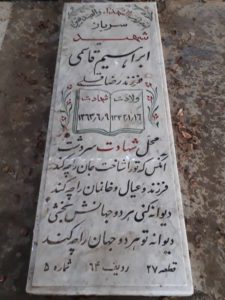 سرباز
شهید
ابراهیم قاسمی
فرزند رضاقلی
ولادت شهادت
۱۳۴۲/۱/۱۶ ۱۳۶۳/۶/۹
محل شهادت سردشت
آنکس که تو را شناخت جان را چه کند
فرزند و عیال و خانمان را چه کند
دیوانه کنی هر دو جهانش بخشی
دیوانه تو هر دو جهان را چه کند
قطعه ۲۷ ردیف ۶۴ شماره ۵